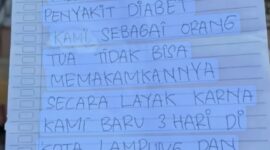 PENYAKIT DIABET
KAMI SEBAGAI ORANG
TUA TIDAK BISA
MEMAKAMKANNYA
SECARA LAYAK KARNA
KAMI BARU 3 HARI DI
KOTA LAMPUNG DAN